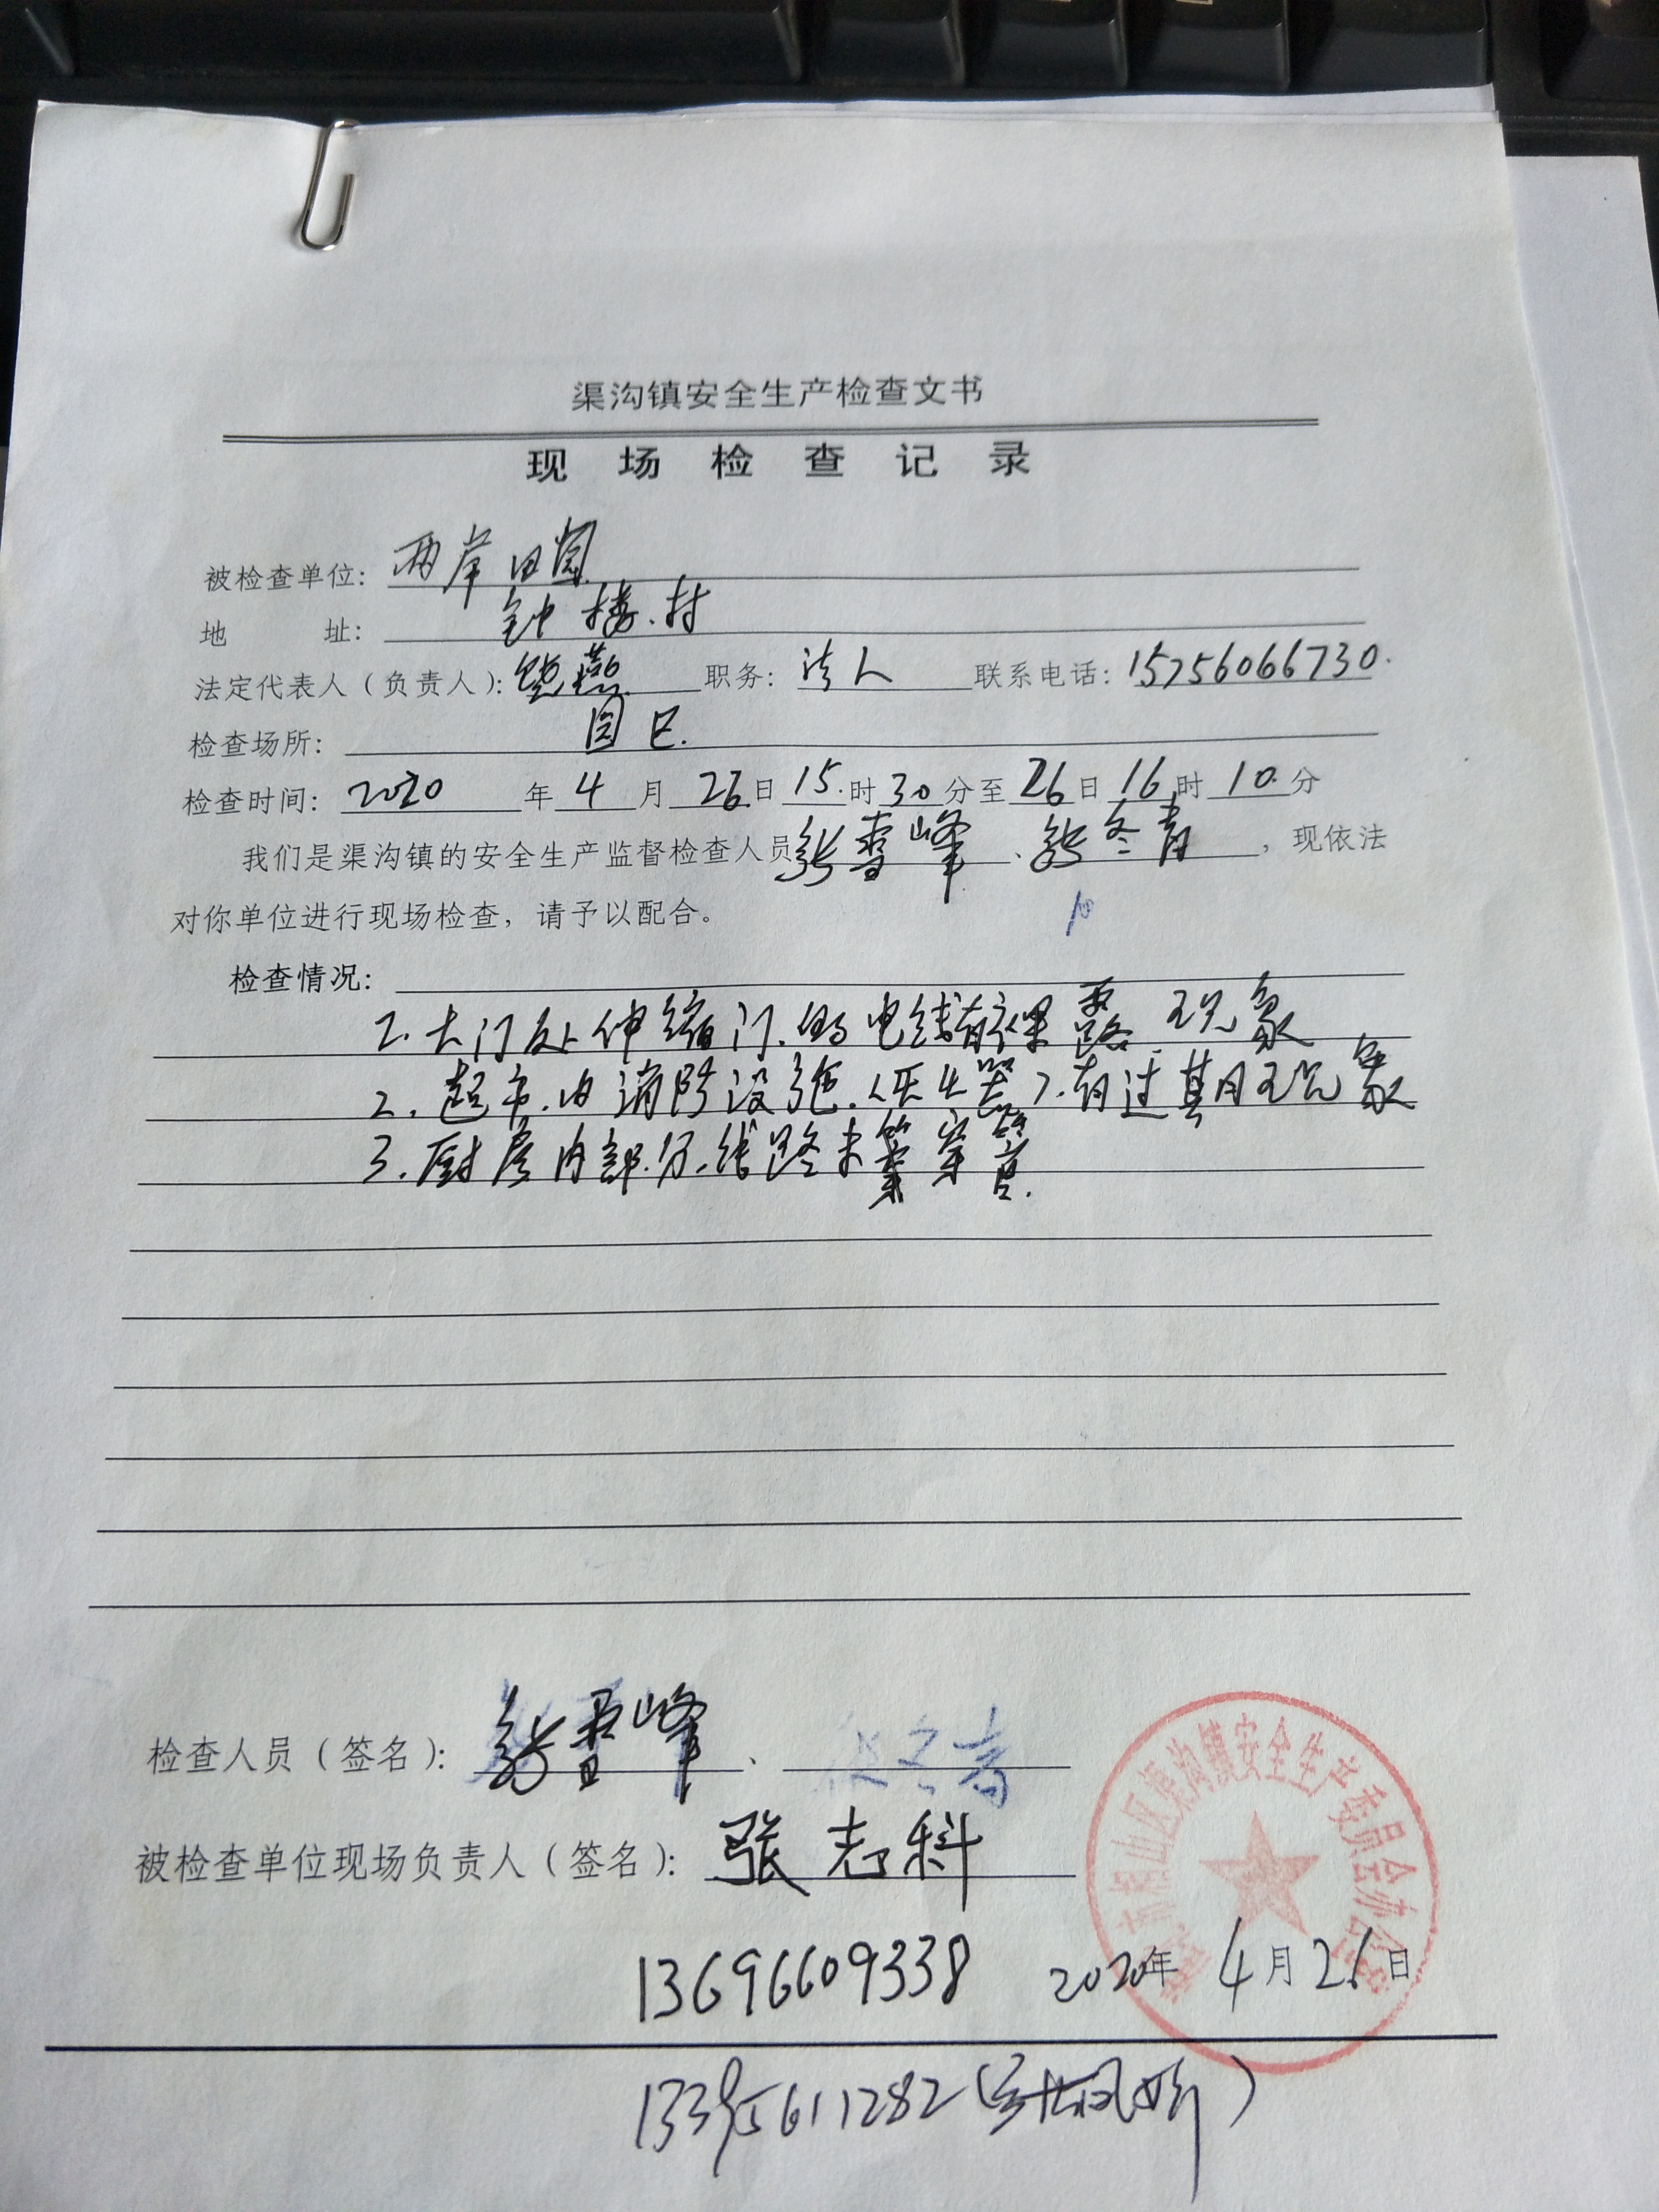 渠沟镇安全生产检查文书
现场检查记录
被检查单位：两岸田园
地 址：钟楼村
法定代表人（负责人）：饶燕 职务：法人 联系电话：15756066730
检查场所：园区
检查时间：2020年4月26日15时30分至26日16时10分
我们是渠沟镇的安全生产监督检查人员张雪峰、张冬青，现依法
对你单位进行现场检查，请予以配合。
检查情况：
1.大门处伸缩门的电线有裸露现象
2.超市内消防设施（灭火器）有过期现象
3.厨房内部分线路未穿管.
检查人员（签名）：张雪峰、 冬青
被检查单位现场负责人（签名）：张志科
市相山区渠沟镇安全生产委员会办公室
13696609338 2020年4月26日
611282